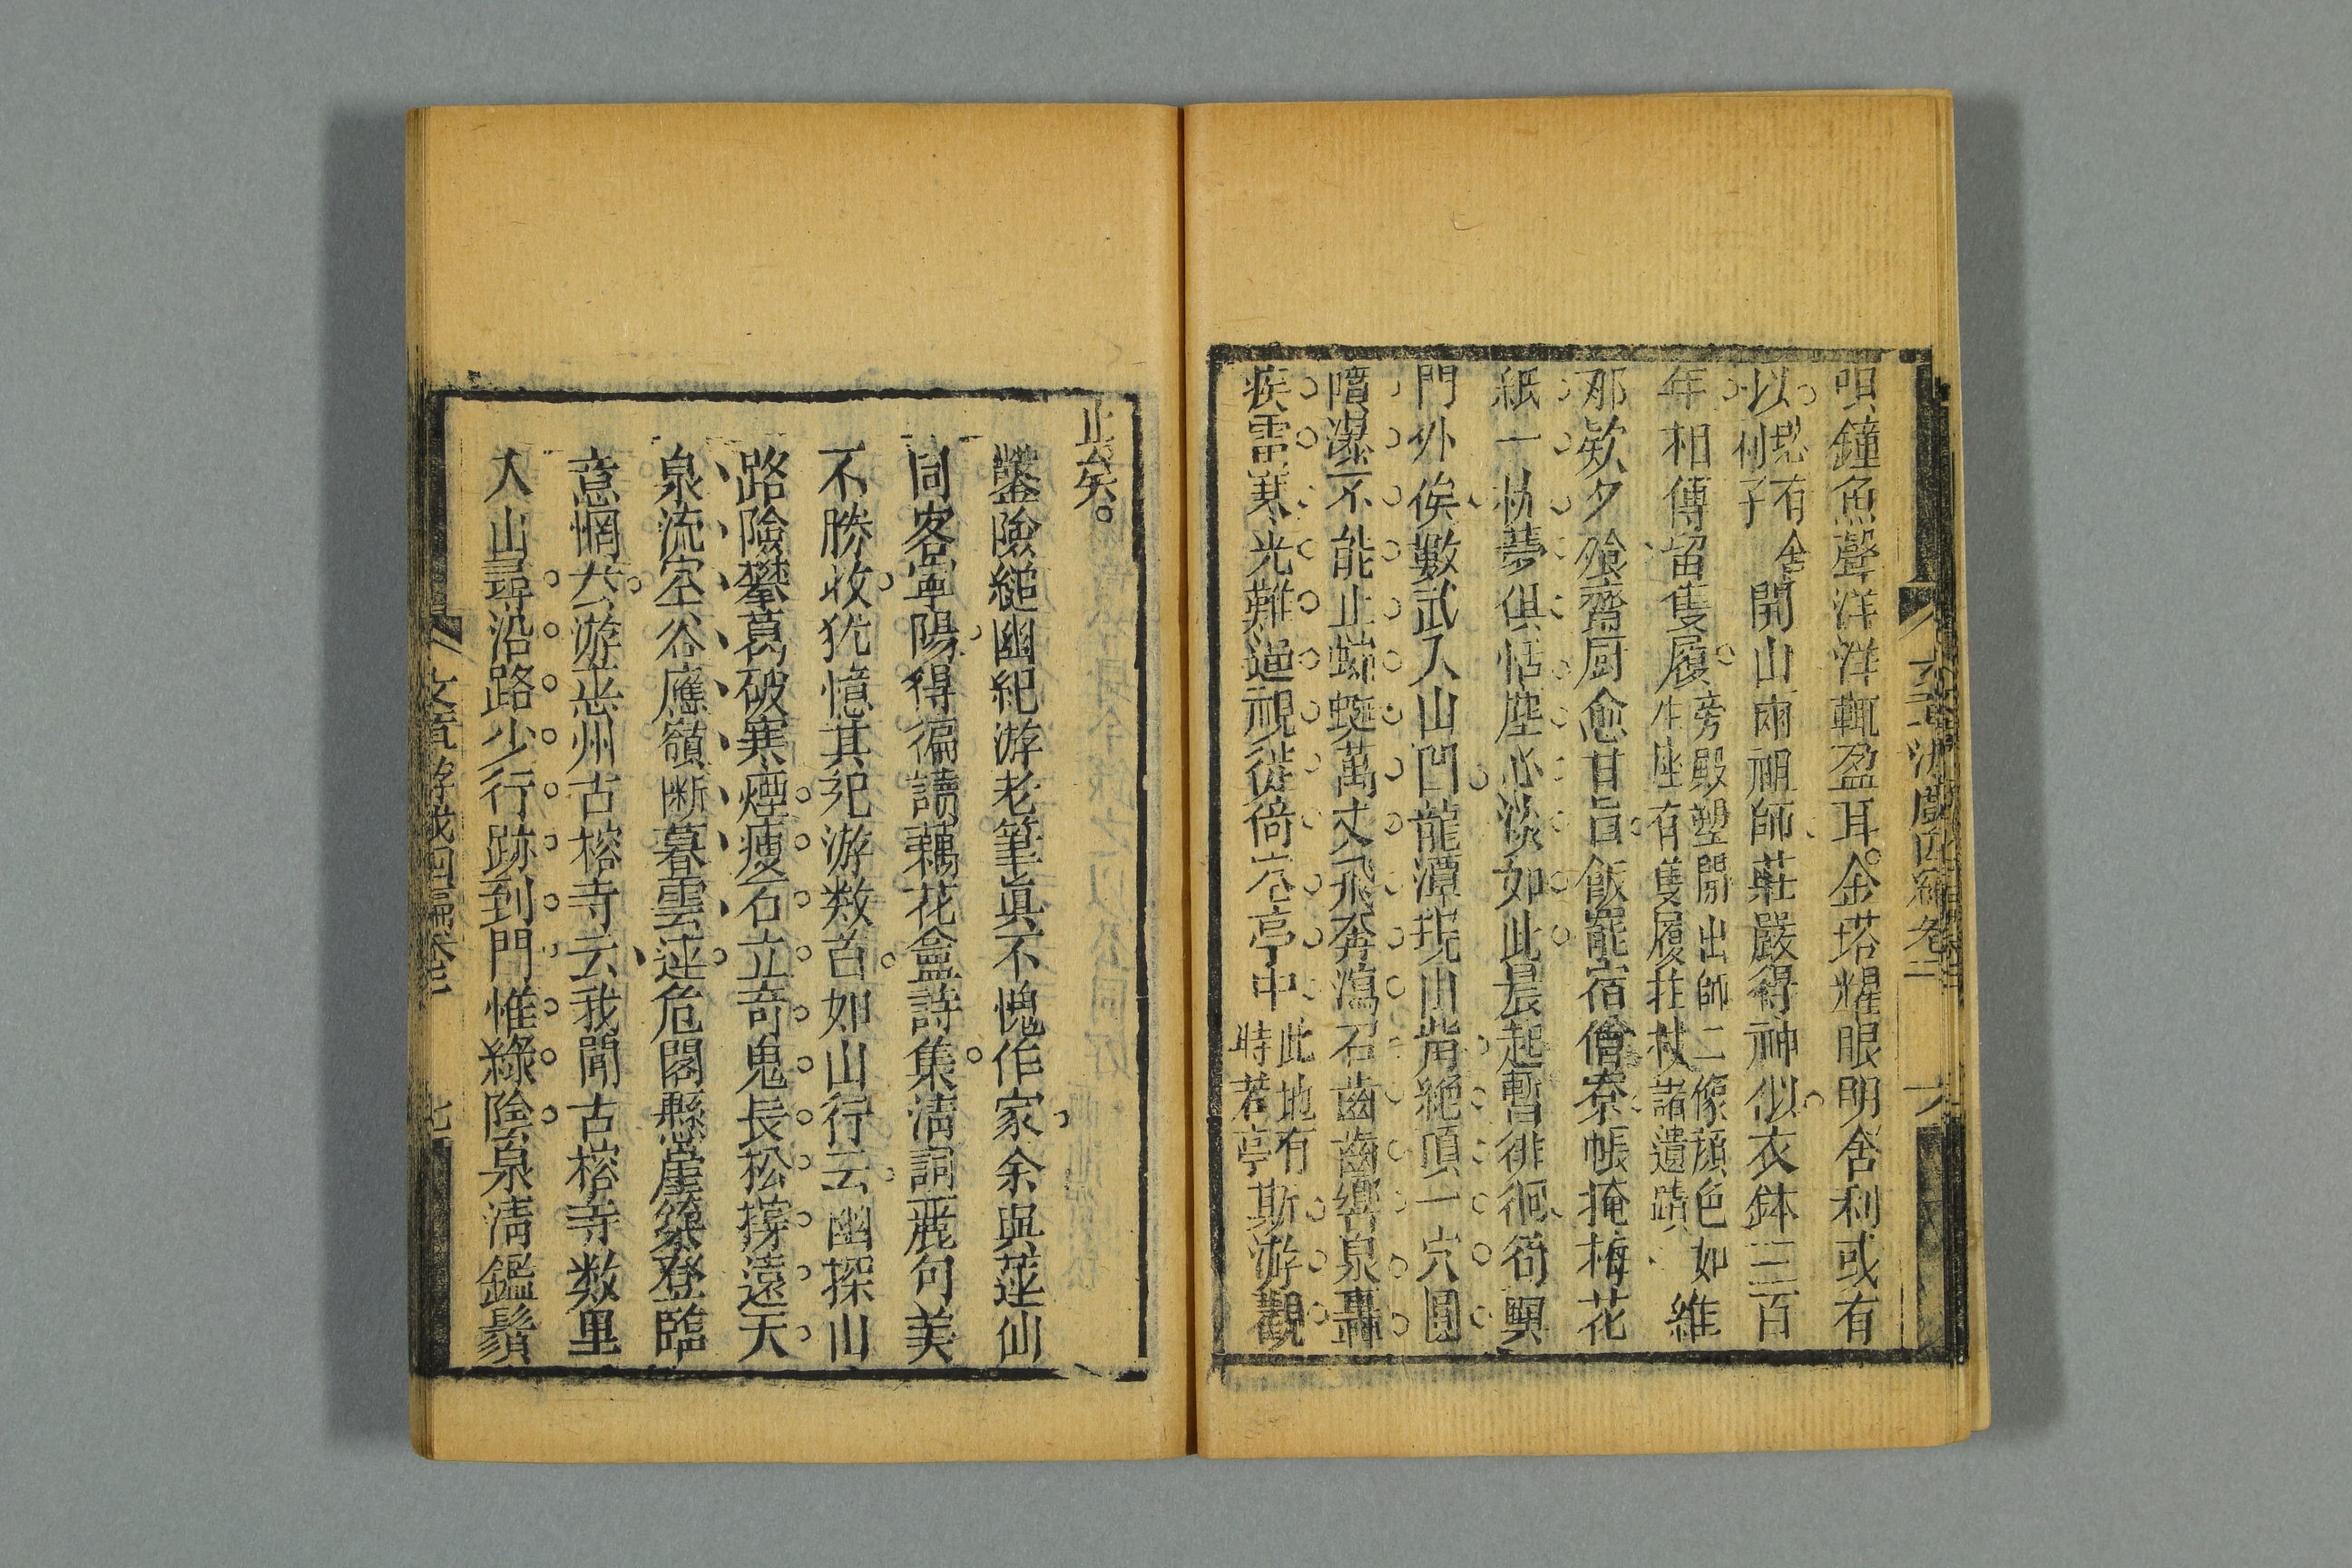 唄鐘魚聲洋洋輒盈耳金塔耀眼明舍利或有
以愁有舍
利子
開山兩祖師莊嚴得神似衣鉢三百
年相傳留隻履
旁殿塑開出師二像顏色如
生座有隻履拄杖諸遺蹟
維
那欵夕飧齋厨愈甘旨飯罷宿僧寮帳掩梅花
紙一枕夢俱恬塵心淡如此晨起暫徘徊荷興
門外俟數武入山凹龍潭現山背絶頂一穴圓
隤瀑不能止蜿蜒萬丈飛奔瀉石齒齒響泉轟
疾雷寒光難逼視徙倚虛亭中
此地有
時若亭
斯游觀
止矣。
鑿險縋幽紀游老筆眞不愧作家余與蓮仙
同客寧陽得徧讀藕花盦詩集清詞麗句美
不勝收犹憶其紀游数首如山行云幽探山
路險攀葛破寒煙瘦石立奇鬼長松撐遠天
泉流空谷應嶺斷暮雲連危閣懸崖築登臨
意惘然游恙州古榕寺云我聞古榕寺数里
入山尋沿路少行跡到門惟綠陰泉清鑑鬚
文章游戲四編卷二
六
文章游戲四編卷二
七